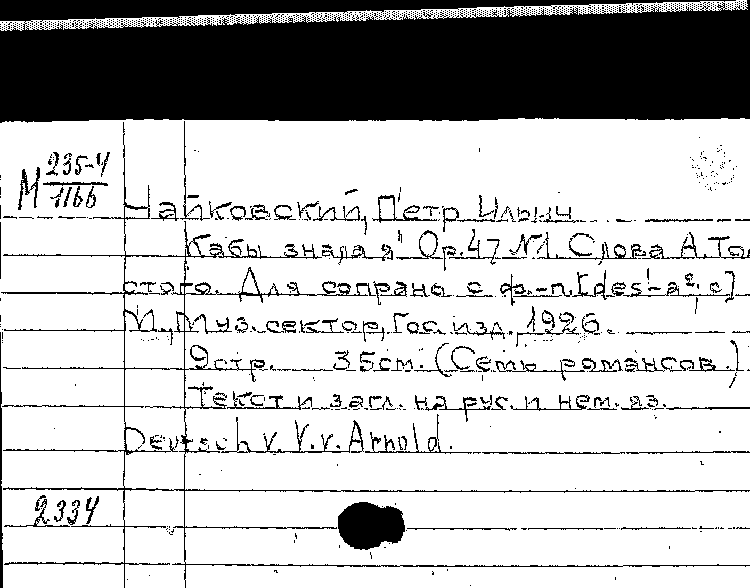 М 235-4
1166
Чайковский, Петр Ильич
Кабы знала я! Ор.47 №1. Слова А.Тол
стого. Для сопрано с ф.-п. [des¹-a²; c]
М., Муз.сектор, Гос.изд., 1926.
9стр. 35см. (Семь романсов.)
Текст и загл. на рус. и нем. яз.
Deutsch v. V.v. Arnold.
2334